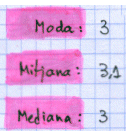 Moda: 3
Mitjana: 3,1
Mediana: 3